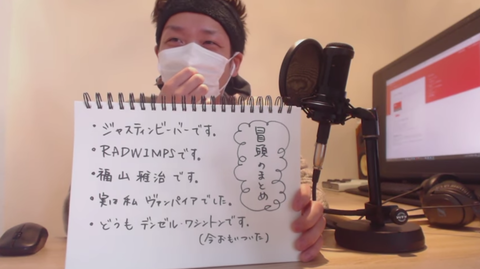 冒頭のまとめ
・ジャスティンビーバーです。
・RADWIMPSです。
・福山雅治です。
・実は私 ヴァンパイアでした。
・どうも デンゼル・ワシントンです。
(今おもいついた)